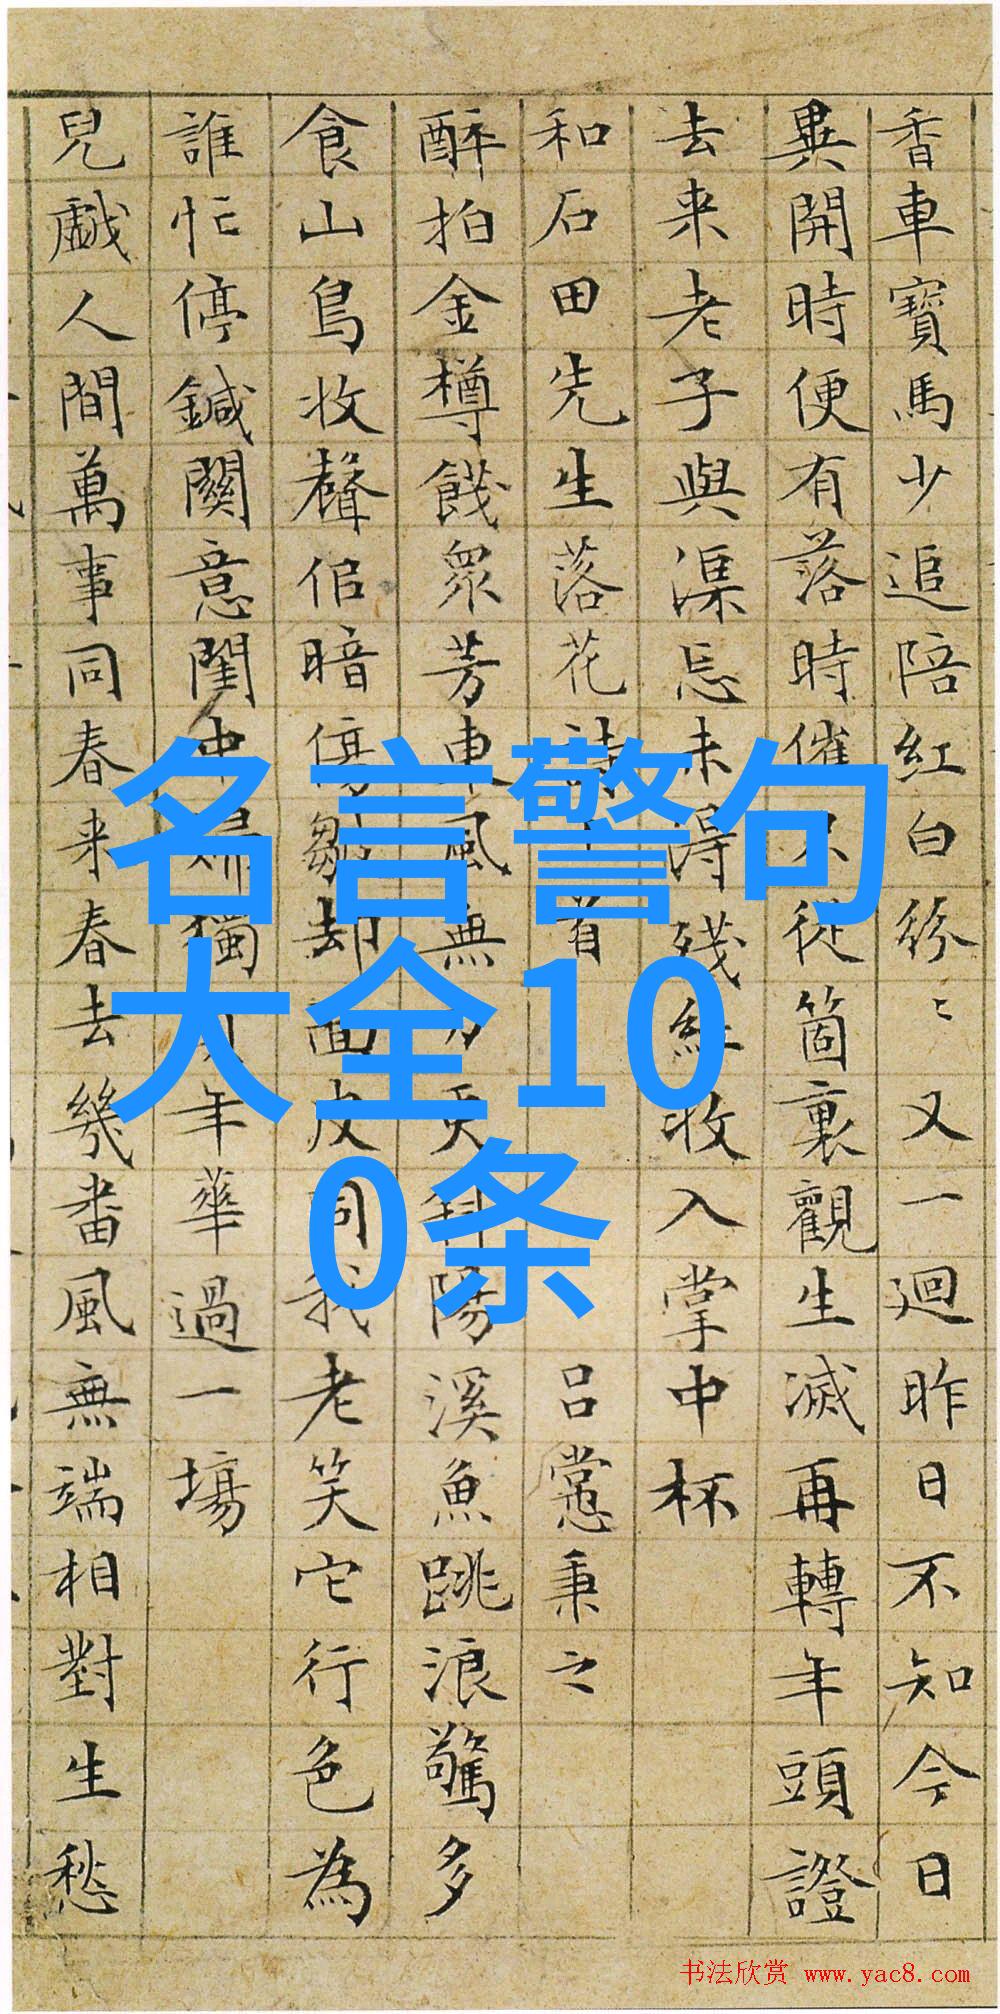 香車寶馬少追陪紅白紛〻又一迴昨日不知今日
異開時便有落時催只從箇裏觀生滅再轉年頭證
去来老子與渠忘未得殘紅收入掌中杯
和石田先生落花詩十首 呂㦂秉之
醉拍金樽餞眾芳東風無力又斜陽溪魚跳浪驚多
食山鳥收聲倍暗傷皺却面皮同我老笑它行色為
誰忙停鍼關意閨中婦獨負年華過一場
兒戲人間萬事同春来春去幾番風無端相對生愁
名言警句
大全10
0条
书法欣赏 www.yac8.com